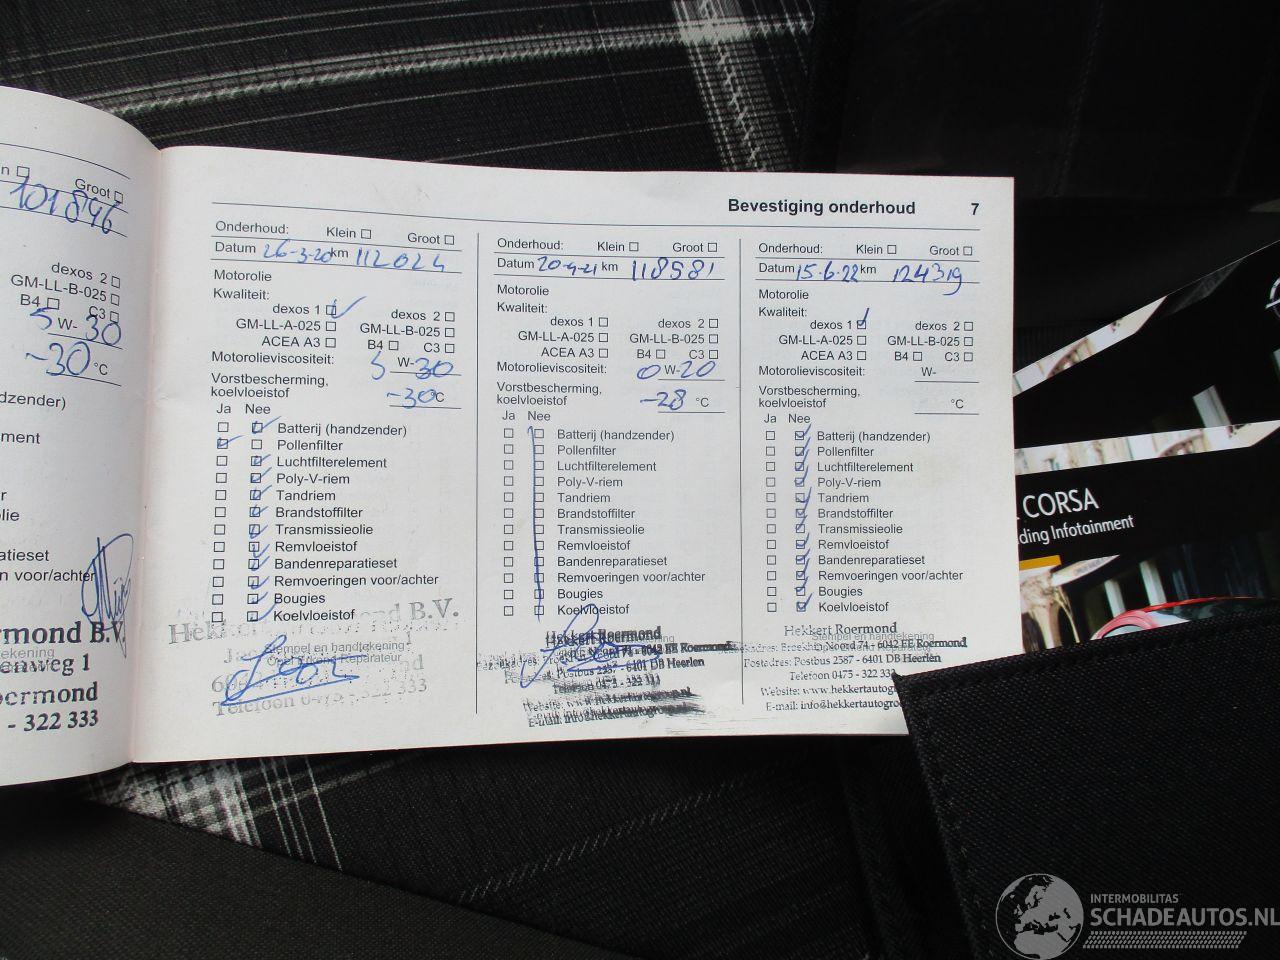 Groot
101896
dexos 2
GM-LL-B-025
B4 C3
5 W- 30
-30 °C
dzender)
ment
olie
paratieset
n voor/achter
rmond B.V.
enweg 1
oermond
- 322 333
Bevestiging onderhoud 7
Onderhoud: Klein Groot
Datum 26-3-20 km 112024
Motorolie
Kwaliteit:
dexos 1 dexos 2
GM-LL-A-025 GM-LL-B-025
ACEA A3 B4 C3
Motorolieviscositeit: 5 W-30
Vorstbescherming,
koelvloeistof -30°C
Ja Nee
Batterij (handzender)
Pollenfilter
Luchtfilterelement
Poly-V-riem
Tandriem
Brandstoffilter
Transmissieolie
Remvloeistof
Bandenreparatieset
Remvoeringen voor/achter
Bougies
Koelvloeistof
Stempel en handtekening
Opel Erkend Reparateur
Telefoon 0475 - 322 333
Onderhoud: Klein Groot
Datum 20-4-21 km 118581
Motorolie
Kwaliteit:
dexos 1 dexos 2
GM-LL-A-025 GM-LL-B-025
ACEA A3 B4 C3
Motorolieviscositeit: 0 W-20
Vorstbescherming,
koelvloeistof -28 °C
Ja Nee
Batterij (handzender)
Pollenfilter
Luchtfilterelement
Poly-V-riem
Tandriem
Brandstoffilter
Transmissieolie
Remvloeistof
Bandenreparatieset
Remvoeringen voor/achter
Bougies
Koelvloeistof
Hekkert Roermond
Postadres: Postbus 2587 - 6401 DB Heerlen
Telefoon 0475 - 322 333
Onderhoud: Klein Groot
Datum 15-6-22 km 124319
Motorolie
Kwaliteit:
dexos 1 dexos 2
GM-LL-A-025 GM-LL-B-025
ACEA A3 B4 C3
Motorolieviscositeit: W-
Vorstbescherming,
koelvloeistof °C
Ja Nee
Batterij (handzender)
Pollenfilter
Luchtfilterelement
Poly-V-riem
Tandriem
Brandstoffilter
Transmissieolie
Remvloeistof
Bandenreparatieset
Remvoeringen voor/achter
Bougies
Koelvloeistof
Hekkert Roermond
Stempel en handtekening
Noord 74 - 6042 EE Roermond
Postadres: Postbus 2587 - 6401 DB Heerlen
Telefoon 0475 - 322 333
Website: www.hekkertautogro
E-mail: info@hekkertautogroe
CORSA
ding Infotainment
INTERMOBILITAS
SCHADEAUTOS.NL